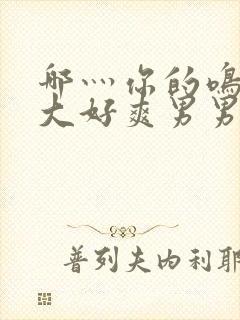 哪灬你的鳴
大好爽男男
普列夫内利耶